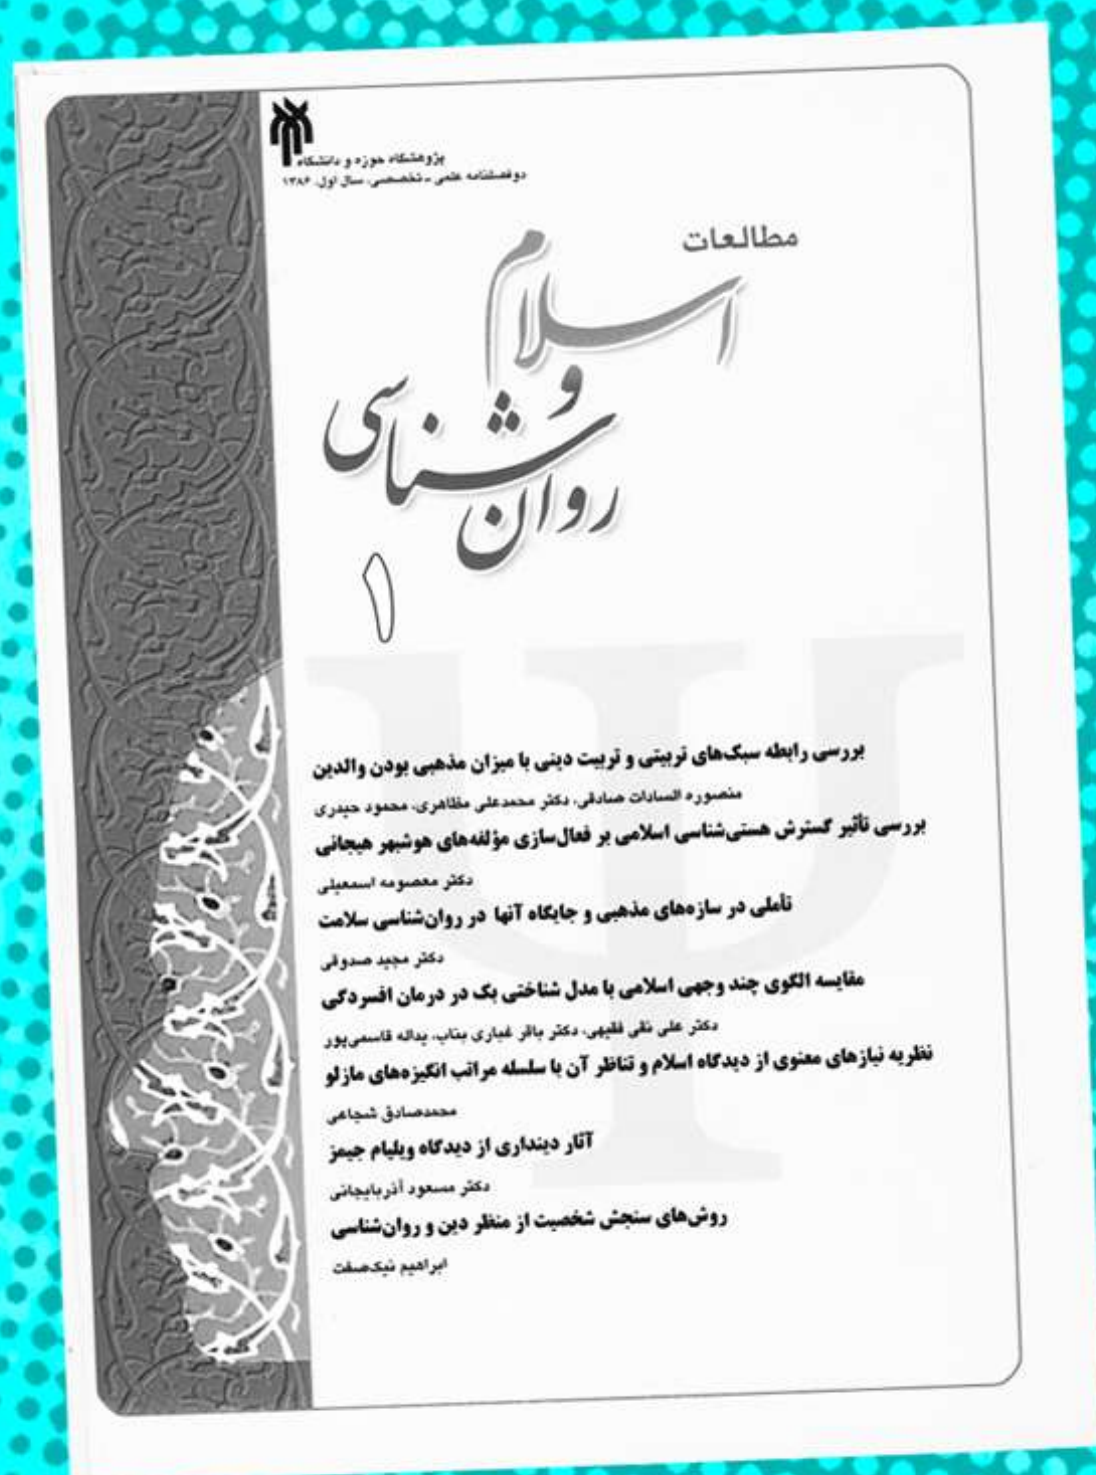 پژوهشگاه حوزه و دانشگاه
دوفصلنامه علمی - تخصصی، سال اول، ۱۳۸۶
مطالعات
اسلام
و
روان‌شناسی
۱
بررسی رابطه سبک‌های تربیتی و تربیت دینی با میزان مذهبی بودن والدین
منصوره السادات صادقی، دکتر محمدعلی مظاهری، محمود حیدری
بررسی تأثیر گسترش هستی‌شناسی اسلامی بر فعال‌سازی مؤلفه‌های هوشبهر هیجانی
دکتر معصومه اسمعیلی
تأملی در سازه‌های مذهبی و جایگاه آنها در روان‌شناسی سلامت
دکتر مجید صدوقی
مقایسه الگوی چند وجهی اسلامی با مدل شناختی بک در درمان افسردگی
دکتر علی نقی فقیهی، دکتر باقر غباری بناب، یداله قاسمی‌پور
نظریه نیازهای معنوی از دیدگاه اسلام و تناظر آن با سلسله مراتب انگیزه‌های مازلو
محمدصادق شجاعی
آثار دینداری از دیدگاه ویلیام جیمز
دکتر مسعود آذربایجانی
روش‌های سنجش شخصیت از منظر دین و روان‌شناسی
ابراهیم نیک‌صفت
Ψ